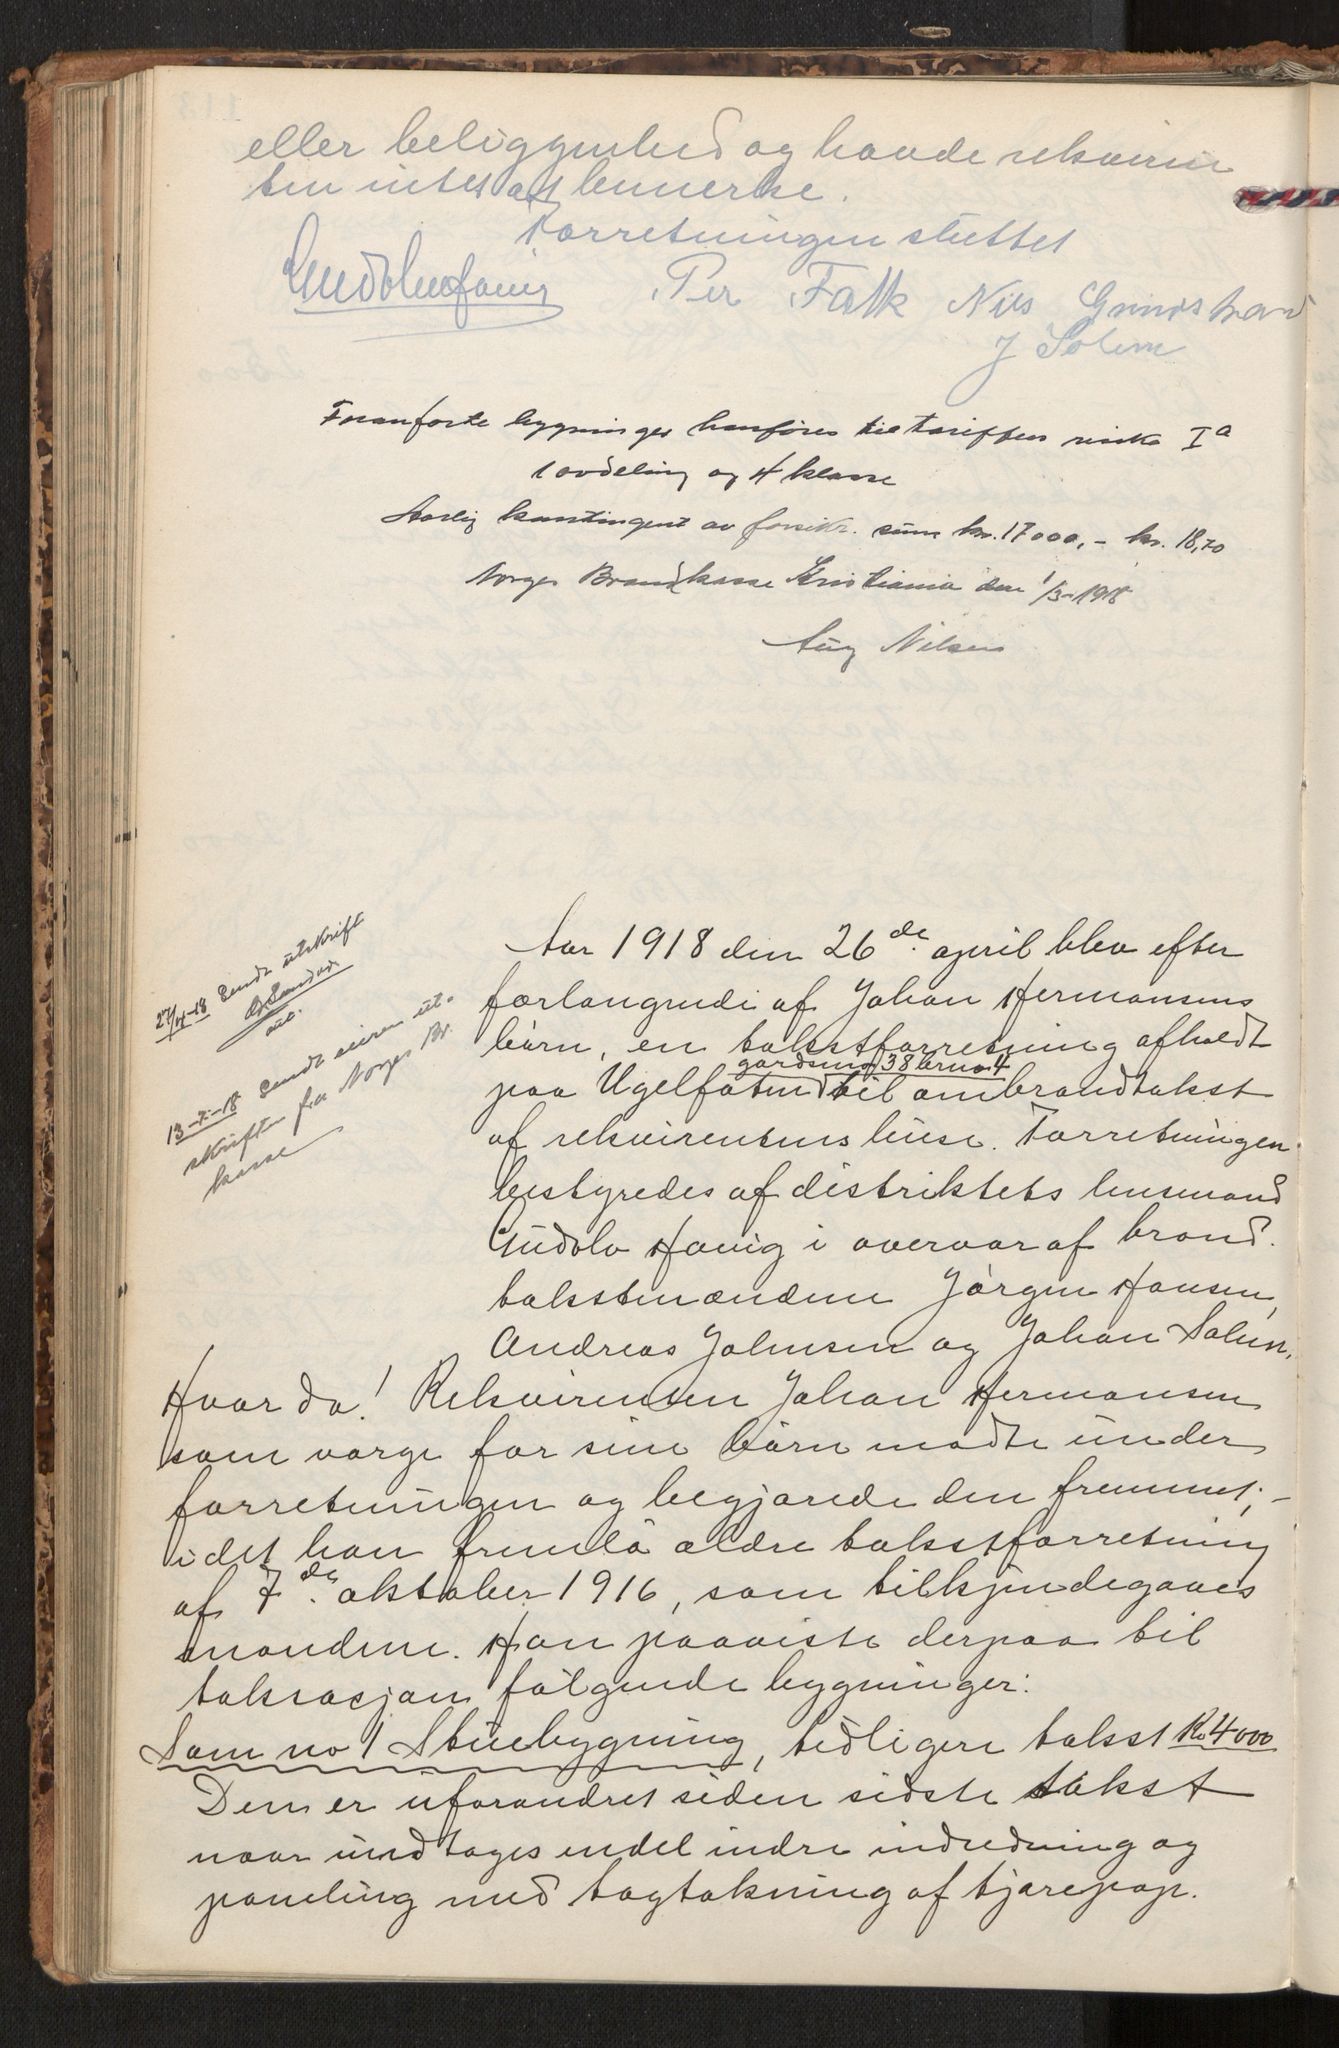 eller beliggenhed og havde rekviren
ten intet at bemerke.
Forretningen sluttet
Gudolv Havig Per Falk Nils Grindstrand
J Solem
Foranførte bygninger henføres til tariffens risiko I a
1 avdeling og 4 klasse
Aarlig kontingent av forsikr. sum kr. 17000,- kr. 18,70
Norges Brandkasse Kristiania den 1/3-1918
Aug Nilsen
27/4-18 Sendt utskrift
13-7-18 Sendt eieren ut-
skriften fra Norges Br.
kasse
Aar 1918 den 26de april blev efter
forlangende af Johan Hermansens
börn, en takstforretning afholdt
gardsno 38 brno 4
paa Ugelfatend til ombrandtakst
af rekvirentens huse. Forretningen
bestyredes af distriktets lensmand
Gudolv Havig i overvær af brand-
takstmændene Jörgen Hansen,
Andreas Johnsen og Johan Solem.
Hvor da! Rekvirenten Johan Hermansen
som værge for sine börn mødte under
forretningen og begjærede den fremmet,-
idet han fremla ældre takstforretning
af 7de oktober 1916, som tilkjendegaves
mændene. Han paaviste derpaa til
taksasjon fölgende bygninger:
Som no 1 Stuebygning, tidligere takst Kr 4000
Den er uforandret siden sidste takst
naar undtages endel indre indredning og
paneling med tagtækning af tjærepap.